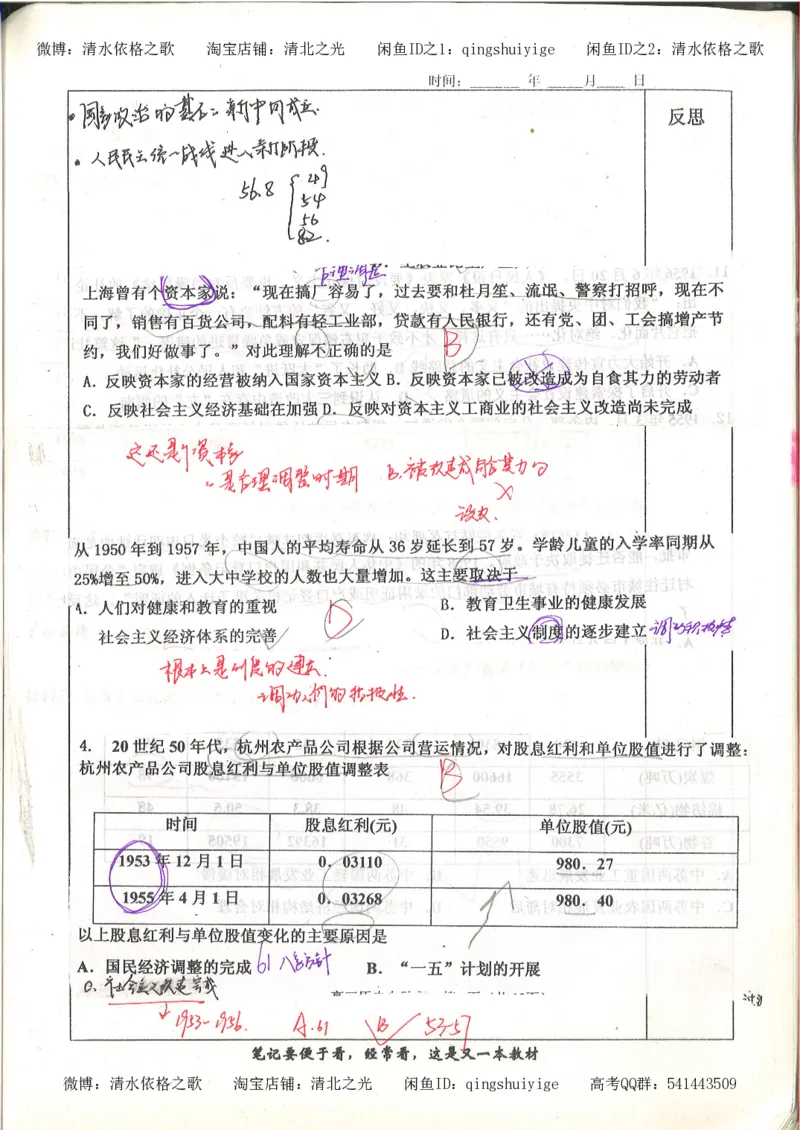 微博：清水依格之歌 淘宝店铺：清北之光 闲鱼ID之1：qingshuiyige 闲鱼ID之2：清水依格之歌
时间：______年____月____日
反思
人民民主统一战线进入新阶段.
56.8 { 49
54
56
82.
合理调整
上海曾有个资本家说：“现在搞厂容易了，过去要和杜月笙、流氓、警察打招呼，现在不
同了，销售有百货公司，配料有轻工业部，贷款有人民银行，还有党、团、工会搞增产节
约，我们好做事了。”对此理解不正确的是
B
A．反映资本家的经营被纳入国家资本主义 B．反映资本家已被改造成为自食其力的劳动者
C．反映社会主义经济基础在加强 D．反映对资本主义工商业的社会主义改造尚未完成
是合理调整时期 B.被改造成自食其力的
×
从 1950 年到 1957 年，中国人的平均寿命从 36 岁延长到 57 岁。学龄儿童的入学率同期从
25%增至 50%，进入大中学校的人数也大量增加。这主要取决于
A．人们对健康和教育的重视 B．教育卫生事业的健康发展
D
社会主义经济体系的完善 D．社会主义制度的逐步建立 调动积极性
根本上是制度的建立.
→调动人们的积极性.
4. 20 世纪 50 年代，杭州农产品公司根据公司营运情况，对股息红利和单位股值进行了调整：
杭州农产品公司股息红利与单位股值调整表
B
时间 股息红利(元) 单位股值(元)
1953 年 12 月 1 日 0．03110 980．27
1955 年 4 月 1 日 0．03268 980．40
以上股息红利与单位股值变化的主要原因是
A．国民经济调整的完成 61 八字方针 B．“一五”计划的开展
C．社会主义改造完成
1953-1956. A.61 B 53-57
笔记要便于看，经常看，这是又一本教材
微博：清水依格之歌 淘宝店铺：清北之光 闲鱼ID：qingshuiyige 高考QQ群：541443509